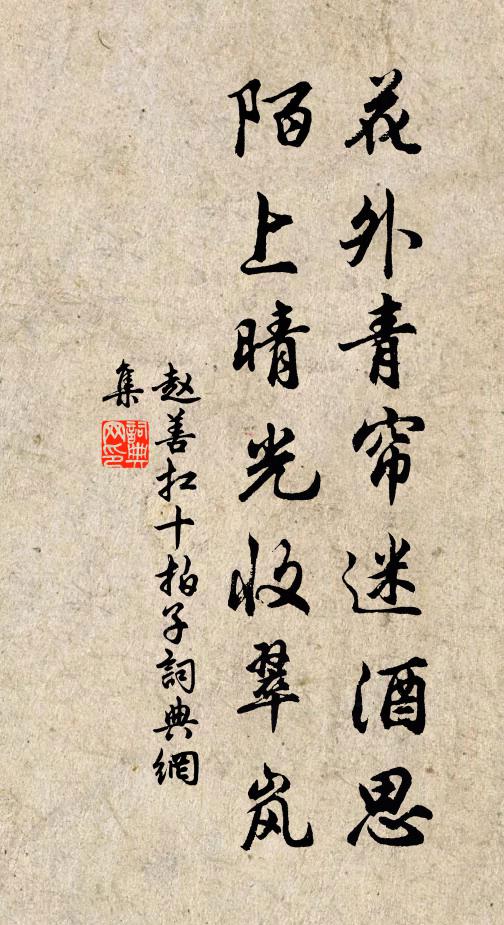 花外青帘迷酒思
陌上晴光收翠岚
赵善扛十拍子詞典網
集
詞典
网印